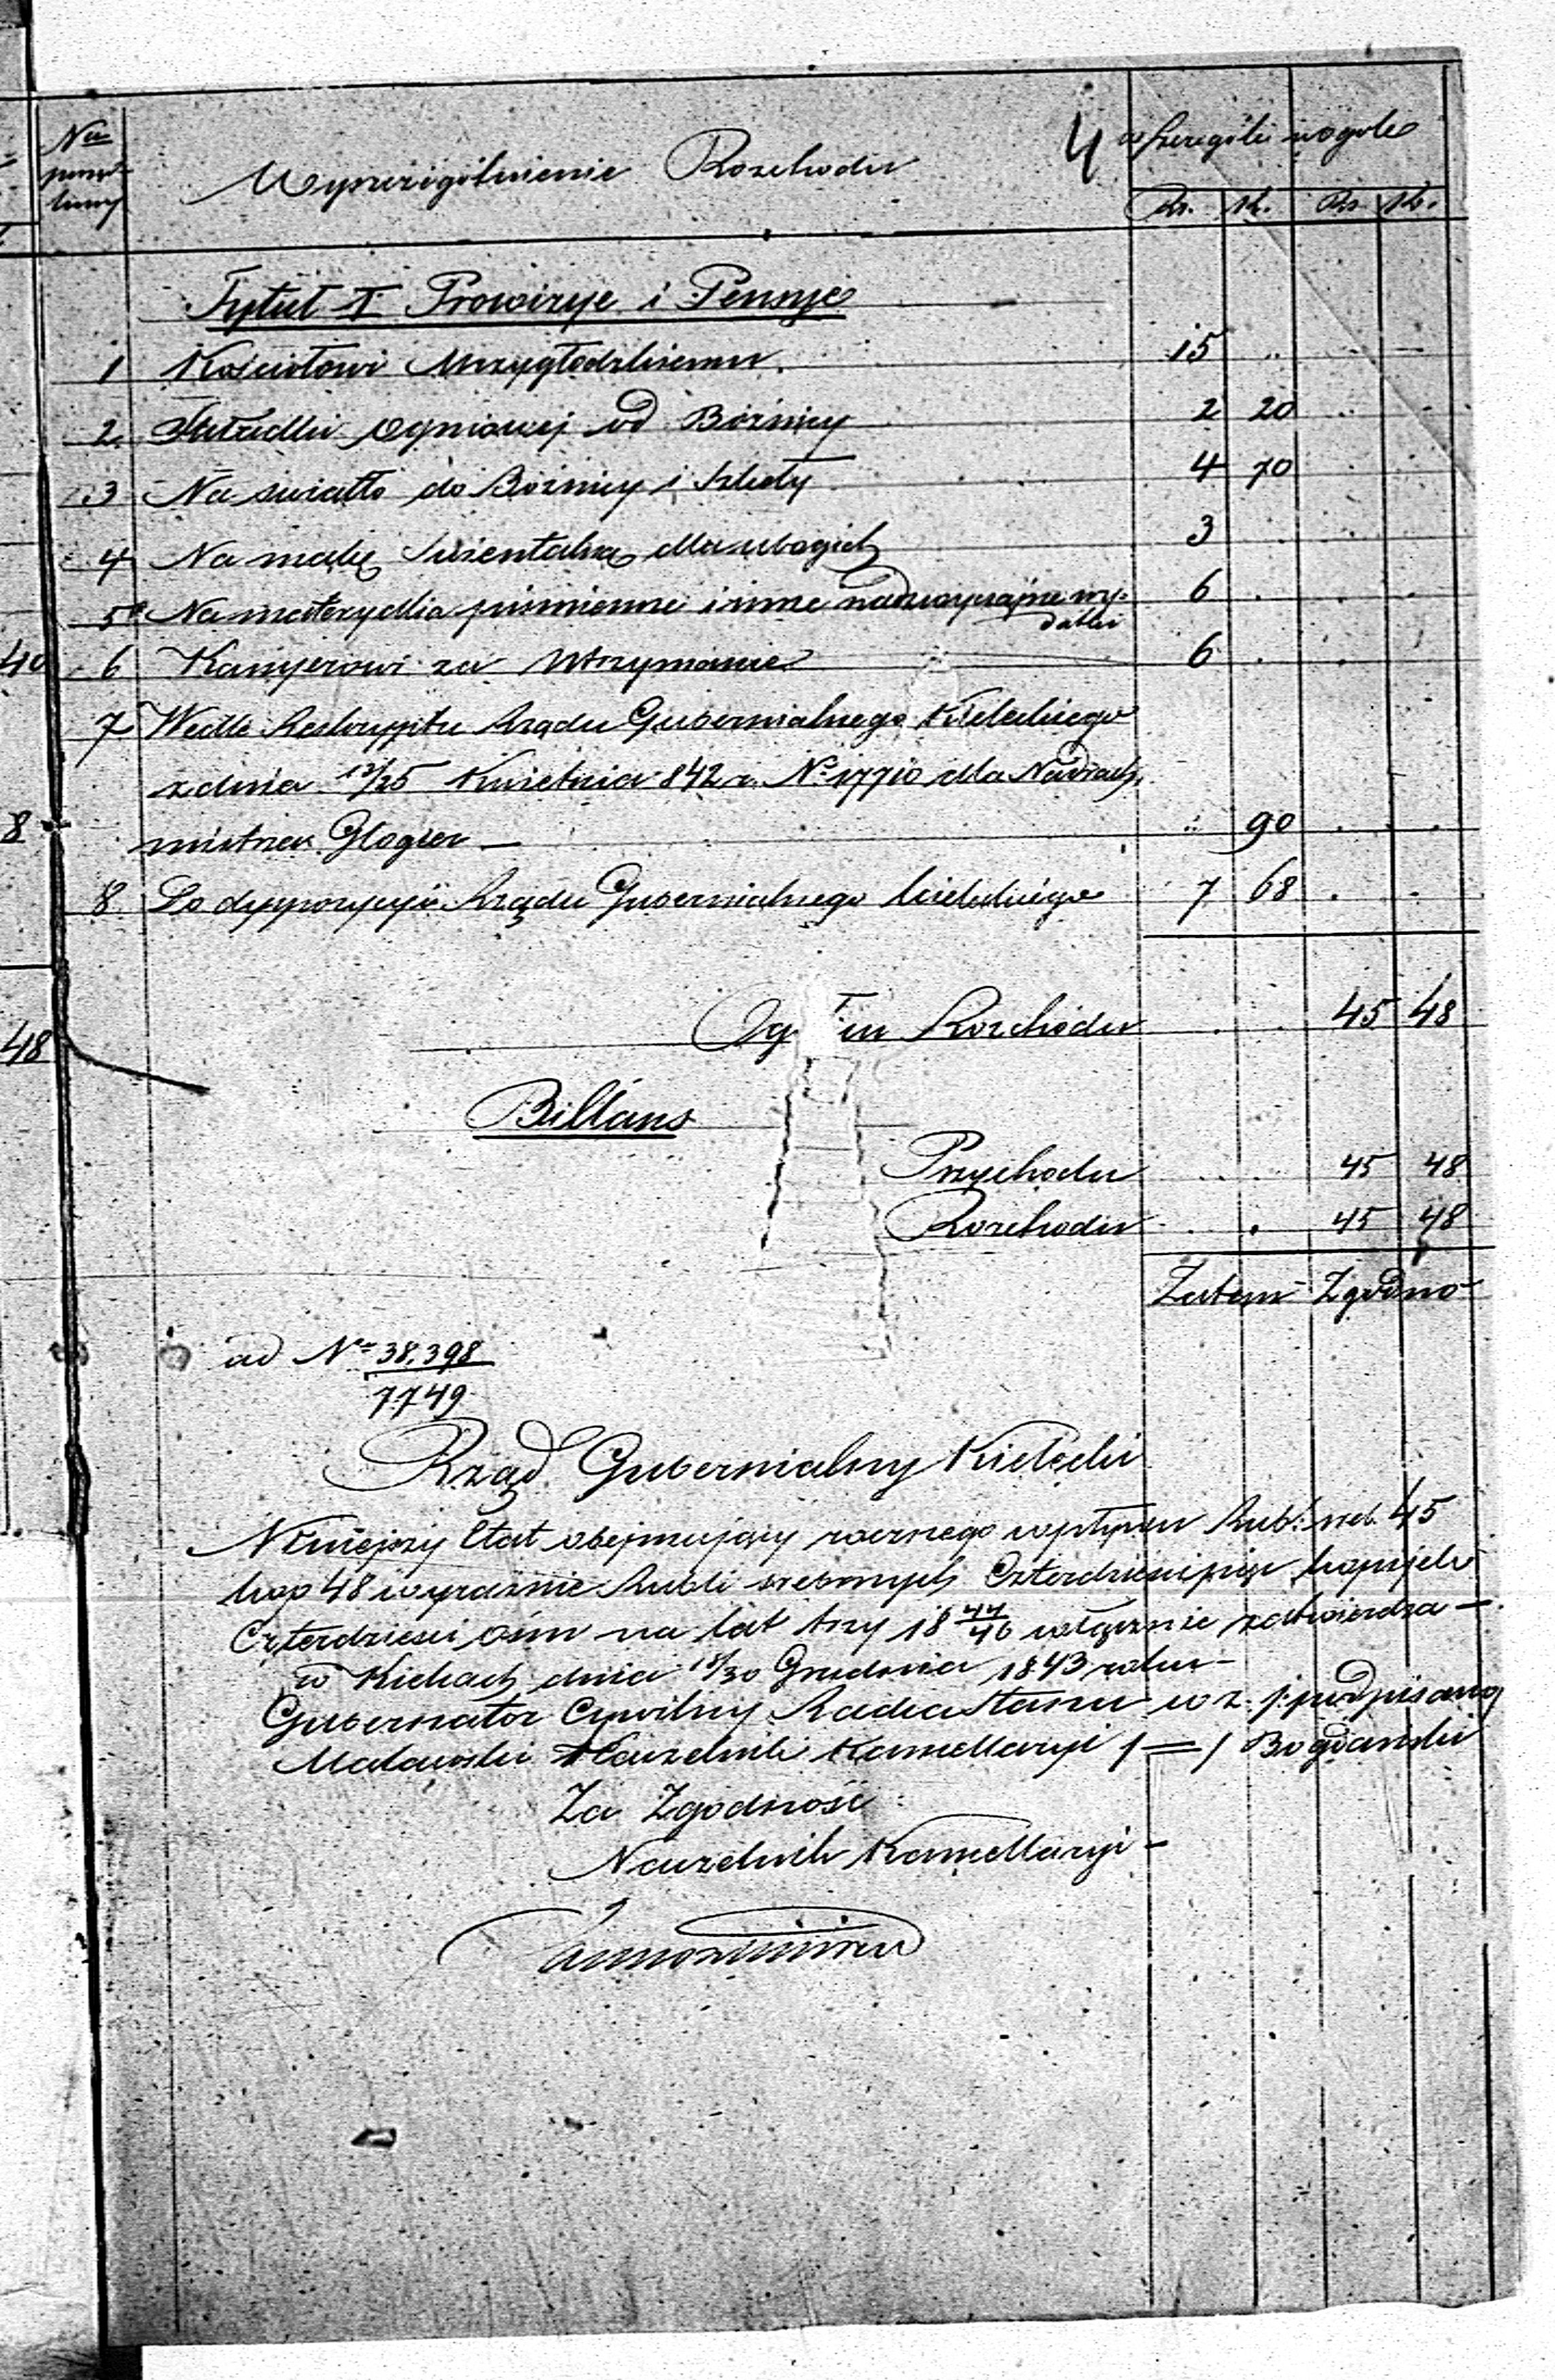 Na porząt- kowy Wyszczególnienie Rozchodu 4 w szczególe w ogóle
Rs. K. Rs. K.
Tytuł I Prowizye i Pensye
1 Kościołowi Mrzygłodzkiemu. 15
2 Składki Ogniowej od Bóżnicy 2 20
3 Na światło do Bóżnicy i Szkoły 4 70
4 Na mąkę dla ubogich 3
5 Na materyallia piśmienne i inne nadzwyczajne wy-
datki 6
6 Kassyerowi za Utrzymanie 6
7 Wedle Reskryptu Rządu Gubernialnego Kieleckiego
z dnia 13/25 Kwietnia 842 r. No 17710 dla Nadrach-
mistrza Gloger — 90
8 Do dyspozycyi Rządu Gubernialnego Kieleckiego 7 68
Rozchodu 45 48
Billans
Przychodu 45 48
Rozchodu 45 48
Zatem Zgodno
ad No 38,398
7749
Rząd Gubernialny Kielecki
Niniejszy Etat obejmujący rocznego wpływu Rub. sreb. 45
kop 48 wyraźnie Rubli srebrnych Czterdzieści pięć kopijek
Czterdzieści ośm na lat trzy 18 44/46 włącznie zatwierdza —.
w Kielcach dnia 18/30 Grudnia 1843 roku —
Gubernator Cywilny Radca Stanu w z. /: podpisano
Naczelnik Kancellaryi /—/ Bogdański
Za Zgodność
Naczelnik Kancellaryi —